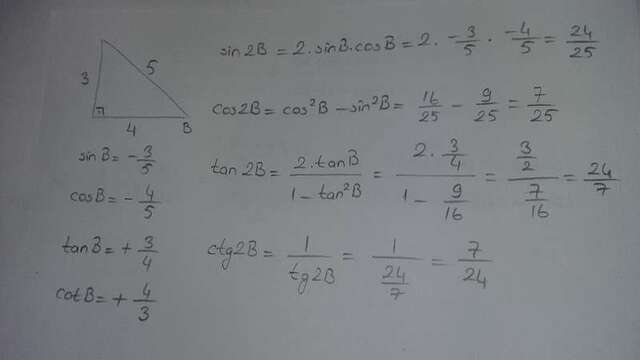 3
5
4
B
sinB = -3/5
cosB = -4/5
tanB = +3/4
cotB = +4/3
sin2B = 2.sinB.cosB = 2 . -3/5 . -4/5 = 24/25
cos2B = cos²B - sin²B = 16/25 - 9/25 = 7/25
tan2B = 2.tanB/1 - tan²B = 2.3/4/1 - 9/16 = 3/2/7/16 = 24/7
ctg2B = 1/tg2B = 1/24/7 = 7/24